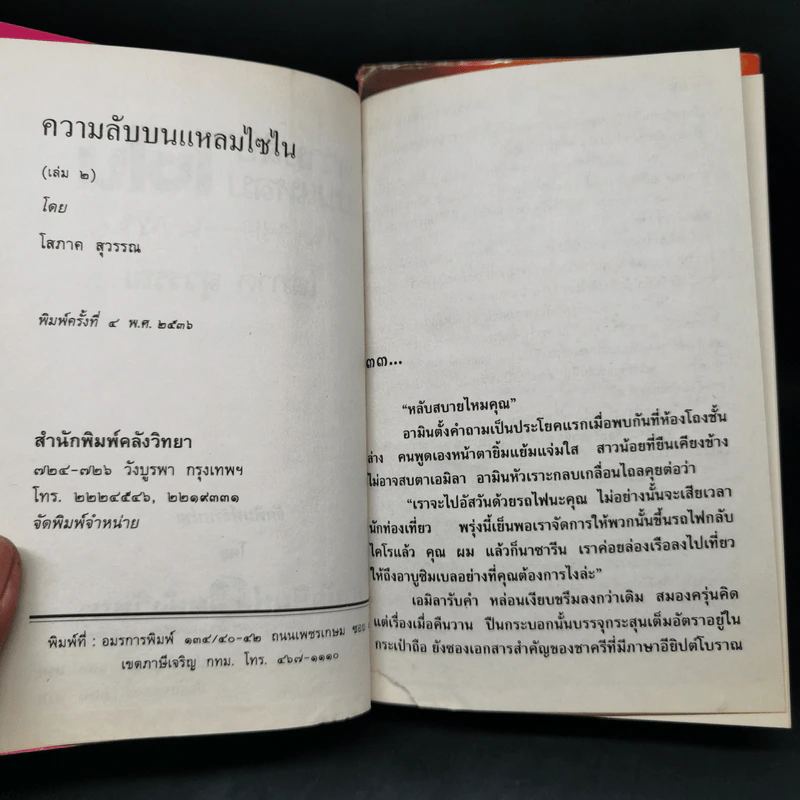 ความลับบนแหลมไซไน
(เล่ม ๒)
โดย
โสภาค สุวรรณ
พิมพ์ครั้งที่ ๔ พ.ศ. ๒๕๓๖
สำนักพิมพ์คลังวิทยา
๗๒๔-๗๒๖ วังบูรพา กรุงเทพฯ
โทร. ๒๒๒๔๕๔๖, ๒๒๑๙๓๓๑
จัดพิมพ์จำหน่าย
พิมพ์ที่ : อมรการพิมพ์ ๑๓๔/๔๐-๔๒ ถนนเพชรเกษม ซอย
เขตภาษีเจริญ กทม. โทร. ๔๖๗-๑๑๑๐
๓๓...
“หลับสบายไหมคุณ”
อามินตั้งคำถามเป็นประโยคแรกเมื่อพบกันที่ห้องโถงชั้น
ล่าง คนพูดเองหน้าตายิ้มแย้มแจ่มใส สาวน้อยที่ยืนเคียงข้าง
ไม่อาจสบตาเอมิลา อามินหัวเราะกลบเกลื่อนไถลคุยต่อว่า
“เราจะไปอัสวันด้วยรถไฟนะคุณ ไม่อย่างนั้นจะเสียเวลา
นักท่องเที่ยว พรุ่งนี้เย็นพอเราจัดการให้พวกนั้นขึ้นรถไฟกลับ
ไคโรแล้ว คุณ ผม แล้วก็นาซารีน เราค่อยล่องเรือลงไปเที่ยว
ให้ถึงอาบูซิมเบลอย่างที่คุณต้องการไงล่ะ”
เอมิลารับคำ หล่อนเงียบขรึมลงกว่าเดิม สมองครุ่นคิด
แต่เรื่องเมื่อคืนวาน ปืนกระบอกนั้นบรรจุกระสุนเต็มอัตราอยู่ใน
กระเป๋าถือ ยังซองเอกสารสำคัญของซาครีที่มีภาษาอียิปต์โบราณ